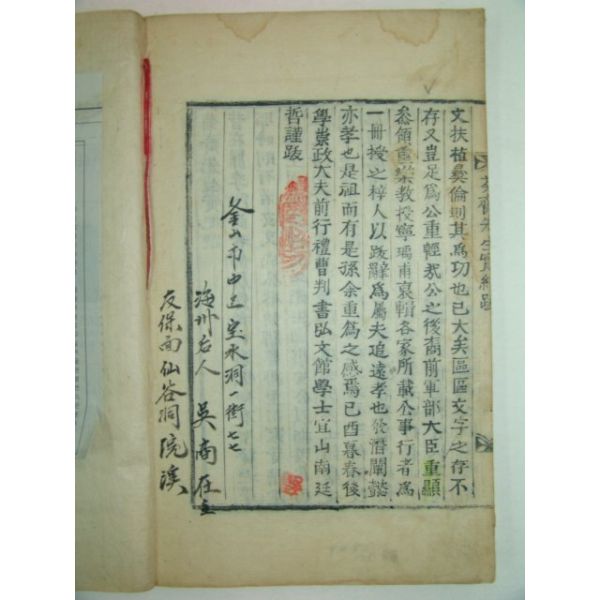 文扶植彜倫則其爲功也已大矣區區文字之存不
存又豈足爲公重輕哉公之後裔前軍部大臣重顯
叅領畫樂教授寧瑀甫裒輯各家所載公事行者爲
一冊授之梓人以跋辭爲屬夫追遠孝也發潛闡懿
亦孝也是祖而有是孫余重爲之感焉己酉暮春後
學崇政大夫前行禮曹判書弘文館學士宜山南廷
哲謹跋
釜山市中区宝水洞一街七七
海州后人 吳南在
友保面仙谷洞